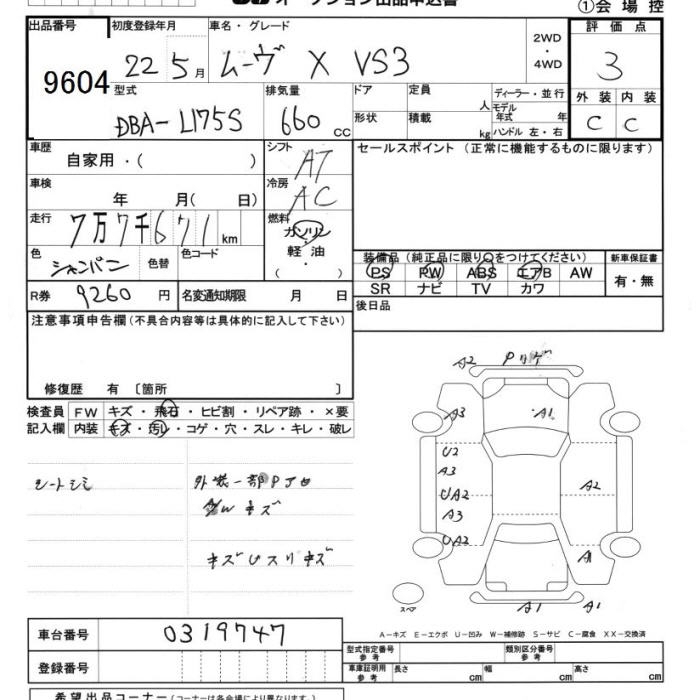 オークション出品申込書
①会場控
出品番号 9604
初度登録年月 22 5月
車名・グレード ムーヴ X VS3
2WD・4WD
評価点 3
型式 DBA-L175S
排気量 660 cc
ドア 定員 人
形状 積載 kg
ディーラー・並行
モデル年式 年
ハンドル 左・右
外装 内装
C C
車歴 自家用・( )
シフト AT
セールスポイント(正常に機能するものに限ります)
車検 年 月( 日)
冷房 AC
走行 7万7千671km
燃料 ガソリン・軽油・( )
色 シャンパン 色替 色コード
装備品(純正品に限り○をつけてください)
新車保証書
PS PW ABS エアB AW
SR ナビ TV カワ
有・無
R券 9260円
名変通知期限 月 日
後日品
注意事項申告欄(不具合内容等は具体的に記入して下さい)
修復歴 有〔箇所 〕
検査員記入欄
FW キズ・飛石・ヒビ割・リペア跡・×要
内装 キズ・汚レ・コゲ・穴・スレ・キレ・破レ
シートシミ
外装一部
キズ
キズ スリキズ
A2
A3 A1
U2
A3
UA2 A2
A3
UA2 A1
A1 A1
スペア
A-キズ E-エクボ U-凹み W-補修跡 S-サビ C-腐食 XX-交換済
車台番号 0319747
型式指定番号 参考
類別区分番号 参考
登録番号
車庫証明用 参考 長さ cm 幅 cm 高さ cm
希望出品コーナー(コーナーは各会場により異なります)